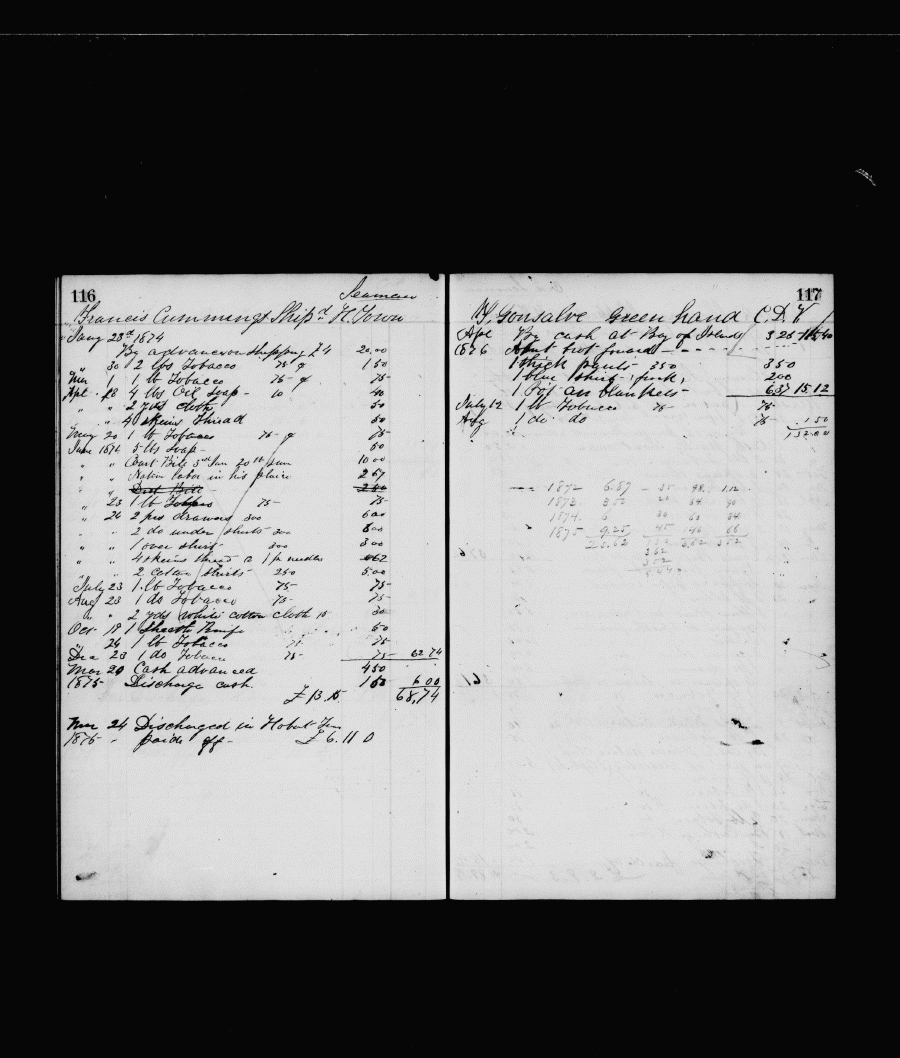 116
Seaman
Francis Cummings Ship.d H. Town
Jany 23d 1874
By advance on shipping £4 20.00
" 30 2 lbs Tobacco 75 ¢ 1 50
Mar 1 1 lb Tobacco 75 ¢ 75
Apl 18 4 lbs Oil Soap - 10 40
" " 2 yds cloth 50
" " 4 skeins thread 50
May 20 1 lb Tobacco 75 ¢ 75
June 1874 5 lbs Soap - 50
" " Court Bill 10 00
" " labor in his place 2 67
" " 2 00
" 23 1 lb Tobacco 75 - 75
" 26 2 prs drawers 300 6 00
" " 2 do under shirts 300 6 00
" " 1 over shirt 300 3 00
" " 4 skeins thread & 1 p needles 62
" " 2 cotton shirts 250 5.00
July 23 1 lb Tobacco 75 - 75
Aug 23 1 do Tobacco 75 - 75
" " 2 yds white cotton cloth 15 30
Oct 19 1 Sheath Knife 50
" 24 1 lb Tobacco 75 75
Dec 23 1 do Tobacco 75 - 75 62 74
Mar 20 Cash advanced 4 50
1875 Discharge cash 1 50 6 00
£ 13.15 68,74
Mar 24 Discharged in Hobart Tn
1875 - paid off - £ 6.11 0
117
Gonsalve Green hand C.D.V
Apl By cash at Bay of Islands 3 25
1876
1 thick pants 350 3 50
1 blue shirt 2 00
1 blankets 6 37 15.12
July 12 1 lb Tobacco 75 75
Aug 1 do do 75 1 50
152.00
1872 6.87 35 98 1.12
1873 3 50
1874 6 30 60 84
1875 9.25 45 40 66
25.62 1 32 2,62 3 52
3 62
3 52